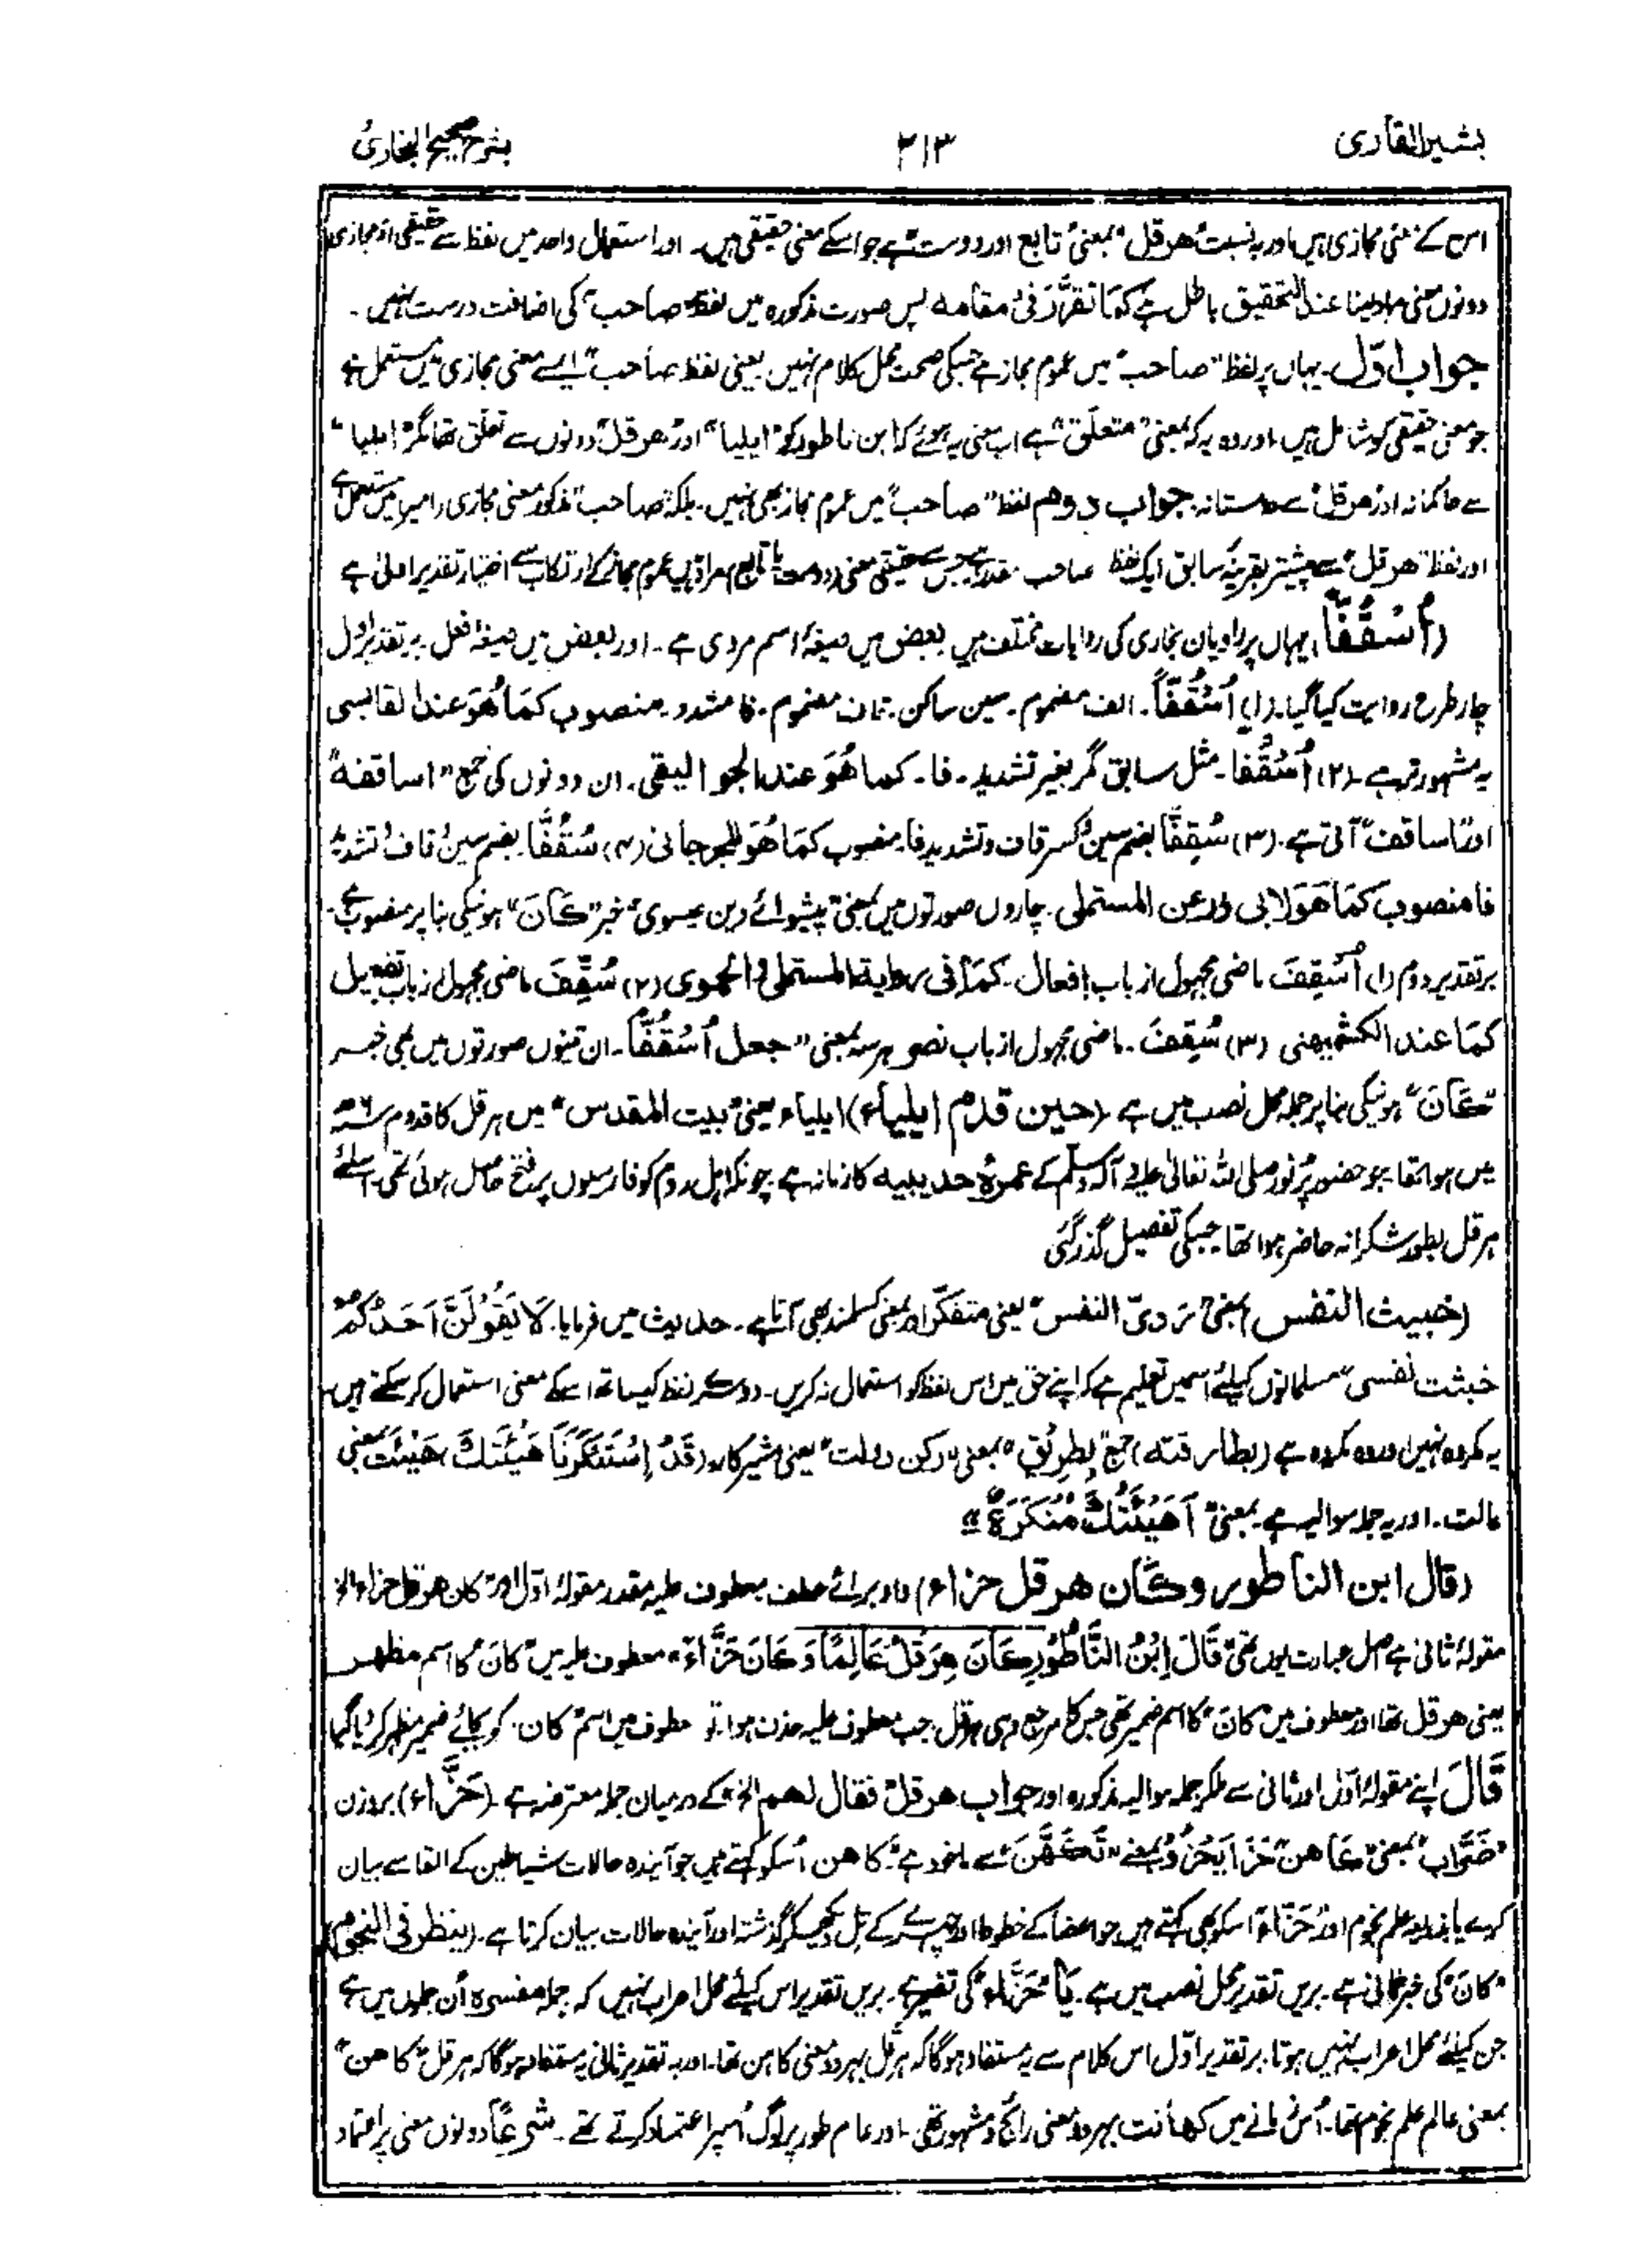 بشیر القاری ۲۱۳ بشرح صحیح البخاری
اس کے معنی مجازی ہیں اور بہ نسبت "ھرقل" بمعنی "تابع اور دوست" ہے جو اسکے معنی حقیقی ہیں۔ اور استعمال واحد میں لفظ سے حقیقی اور مجازی
دونوں معنی مراد لینا عند التحقیق باطل ہے کَمَا تَقَرَّرَ فِیْ مقامہ پس صورت مذکورہ میں لفظ "صاحب" کی اضافت درست نہیں۔
جواب اوّل۔ یہاں پر لفظ "صاحب" میں عموم مجاز ہے جسکی صحت محل کلام نہیں یعنی لفظ "صاحب" ایسے معنی مجازی میں مستعمل ہے
جو معنی حقیقی کو شامل ہیں۔ اور وہ یہ کہ بمعنی "متعلّق" ہے اب معنی یہ ہوئے کہ ابن ناطور کو "ایلیا" اور "ھرقل" دونوں سے تعلّق تھا مگر "ایلیا"
سے حاکمانہ اور ھرقل سے دوستانہ۔ جواب دوم لفظ "صاحب" میں عموم مجاز بھی نہیں۔ بلکہ "صاحب" مذکور معنی مجازی (امیر) میں مستعمل ہے
اور لفظ "ھرقل" سے پیشتر بقرینۂ سابق ایک لفظ صاحب مقدر ہے جس سے حقیقی معنی (دوست یا تابع) مراد ہیں عموم مجاز کے ارتکاب سے اختیار تقدیر اولیٰ ہے
(اُسْقُفًّا) یہاں پر راویان بخاری کی روایات مختلف ہیں بعض میں صیغۂ اسم مروی ہے۔ اور بعض میں صیغۂ فعل۔ بر تقدیر اول
چار طرح روایت کیا گیا۔ (۱) اُسْقُفًّا۔ الف مضموم۔ سین ساکن۔ قاف مضموم۔ فا مشدد۔ منصوب کَمَا ھُوَ عند القابسی
یہ مشہور تر ہے۔ (۲) اُسْقُفًا۔ مثل سابق مگر بغیر تشدید۔ فا۔ کما ھُوَ عند الجوالیقی۔ ان دونوں کی جمع "اساقفہ"
اور "اساقف" آتی ہے۔ (۳) سُقِفًّا بضم سین و کسر قاف و تشدید فا منصوب کَمَا ھُوَ للجرجانی (۴) سُقُفًّا۔ بضم سین و قاف و تشدید
فا منصوب کَمَا ھُوَ لابی ذر عن المستملی۔ چاروں صورتوں میں بمعنی "پیشوائے دین عیسوی" خبر "کَانَ" ہونیکی بنا پر منصوب ہے۔
بر تقدیر دوم (۱) اُسْقِفَ ماضی مجہول از باب افعال۔ کَمَا فی روایۃ المستملی والحموی (۲) سُقِّفَ ماضی مجہول از باب تفعیل
کَمَا عند الکشمیھنی (۳) سُقِفَ۔ ماضی مجہول از باب نصر ہر سہ بمعنی "جعل اُسْقُفًّا"۔ ان تینوں صورتوں میں بھی خبر
"کَانَ" ہونیکی بنا پر جملہ محل نصب میں ہے (حین قدم ایلیاء) ایلیاء یعنی "بیت المقدس" میں ہرقل کا قدوم ۶ھ
میں ہوا تھا۔ جو حضور پُر نور صلی اللہ تعالیٰ علیہ وآلہ وسلم کے عمرۂ حدیبیہ کا زمانہ ہے چونکہ اہل روم کو فارسیوں پر فتح حاصل ہوئی تھی۔ اسلئے
ہرقل بطور شکرانہ حاضر ہوا تھا جسکی تفصیل گذر گئی
(خبیث النفس) بمعنی "رَدِیّ النفس" یعنی متفکّر اور بمعنی کسلمند بھی آتا ہے۔ حدیث میں فرمایا۔ لَا یَقُوْلَنَّ اَحَدُکُمْ
خبثت نفسی" مسلمانوں کیلئے اسمیں تعلیم ہے کہ اپنے حق میں اس لفظ کو استعمال نہ کریں۔ دوسرے لفظ کیساتھ اسکے معنی استعمال کر سکتے ہیں۔
یہ مکروہ نہیں اور وہ مکروہ ہے (بطارقتہ) جمع "بِطرِیْق" بمعنی "رکن دولت" یعنی مشیر کار۔ (قَدْ اِسْتَنْکَرْنَا ھَیْئَتَکَ) ھَیْئَت بمعنی
حالت۔ اور یہ جملہ سوالیہ ہے بمعنی "اَھَیْئَتُکَ مُنْکَرَۃٌ"
(قال ابن الناطور وکان ھرقل حزاء) واو برائے عطف معطوف علیہ مقدر مقولۂ اوّل اور "کان ھرقل حزاء الخ
مقولۂ ثانی ہے اصل عبارت یوں تھی "قَالَ اِبْنُ النَّاطُوْرِ کَانَ ھِرَقْلُ عَالِمًا وَکَانَ حَزَّاءً" معطوف علیہ میں "کان" کا اسم مظھر
یعنی ھرقل تھا اور معطوف میں "کَانَ" کا اسم ضمیر تھی جس کا مرجع وہی ہرقل جب معطوف علیہ حذف ہوا تو معطوف میں اسم "کان" کو بجائے ضمیر مظہر کر دیا گیا
قَالَ اپنے مقولۂ اوّل اور ثانی سے ملکر جملہ سوالیہ مذکورہ اور جواب ھرقل "فقال لھم الخ" کے درمیان جملہ معترضہ ہے۔ (حَزَّاء) بروزن
"ضَرَّاب" بمعنی "کَاھِن" حَزَا یَحْزُوْ بمعنے "تَکَھَّنَ" سے ماخوذ ہے۔ "کاھن" اُسکو کہتے ہیں جو آیندہ حالات شیاطین کے القا سے بیان
کرے یا بذریعہ علم نجوم اور "حَزَّاء" اسکو بھی کہتے ہیں جو اعضا کے خطوط اور چہرے کے تِل دیکھکر گذشتہ اور آیندہ حالات بیان کرتا ہے۔ (ینظر فی النجوم)
"کَانَ" کی خبر ثانی ہے۔ بریں تقدیر محل نصب میں ہے۔ یَا "حَزَّاء" کی تفسیر ہے۔ بریں تقدیر اس کیلئے محل اعراب نہیں کہ جملہ مفسرہ اُن جملوں میں ہے
جن کیلئے محل اعراب نہیں ہوتا۔ بر تقدیر اوّل اس کلام سے یہ مستفاد ہوگا کہ ہرقل بہر دو معنی کاہن تھا۔ اور بہ تقدیر ثانی یہ مستفاد ہوگا کہ ہرقل "کاھن"
بمعنی عالم علم نجوم تھا۔ اُس زمانے میں کھانت بہر دو معنی رائج و مشہور تھی۔ اور عام طور پر لوگ اُسپر اعتماد کرتے تھے۔ شرعًا دونوں معنی پر اعتماد